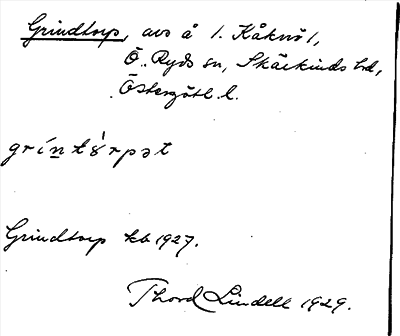 Grindtorp, avs å 1. Kåknö 1,
Ö. Ryds sn, Skärkinds hd,
Östergötl. l.
gríntórpət
Grindtorp kb 1927.
Thord Lindell 1929.